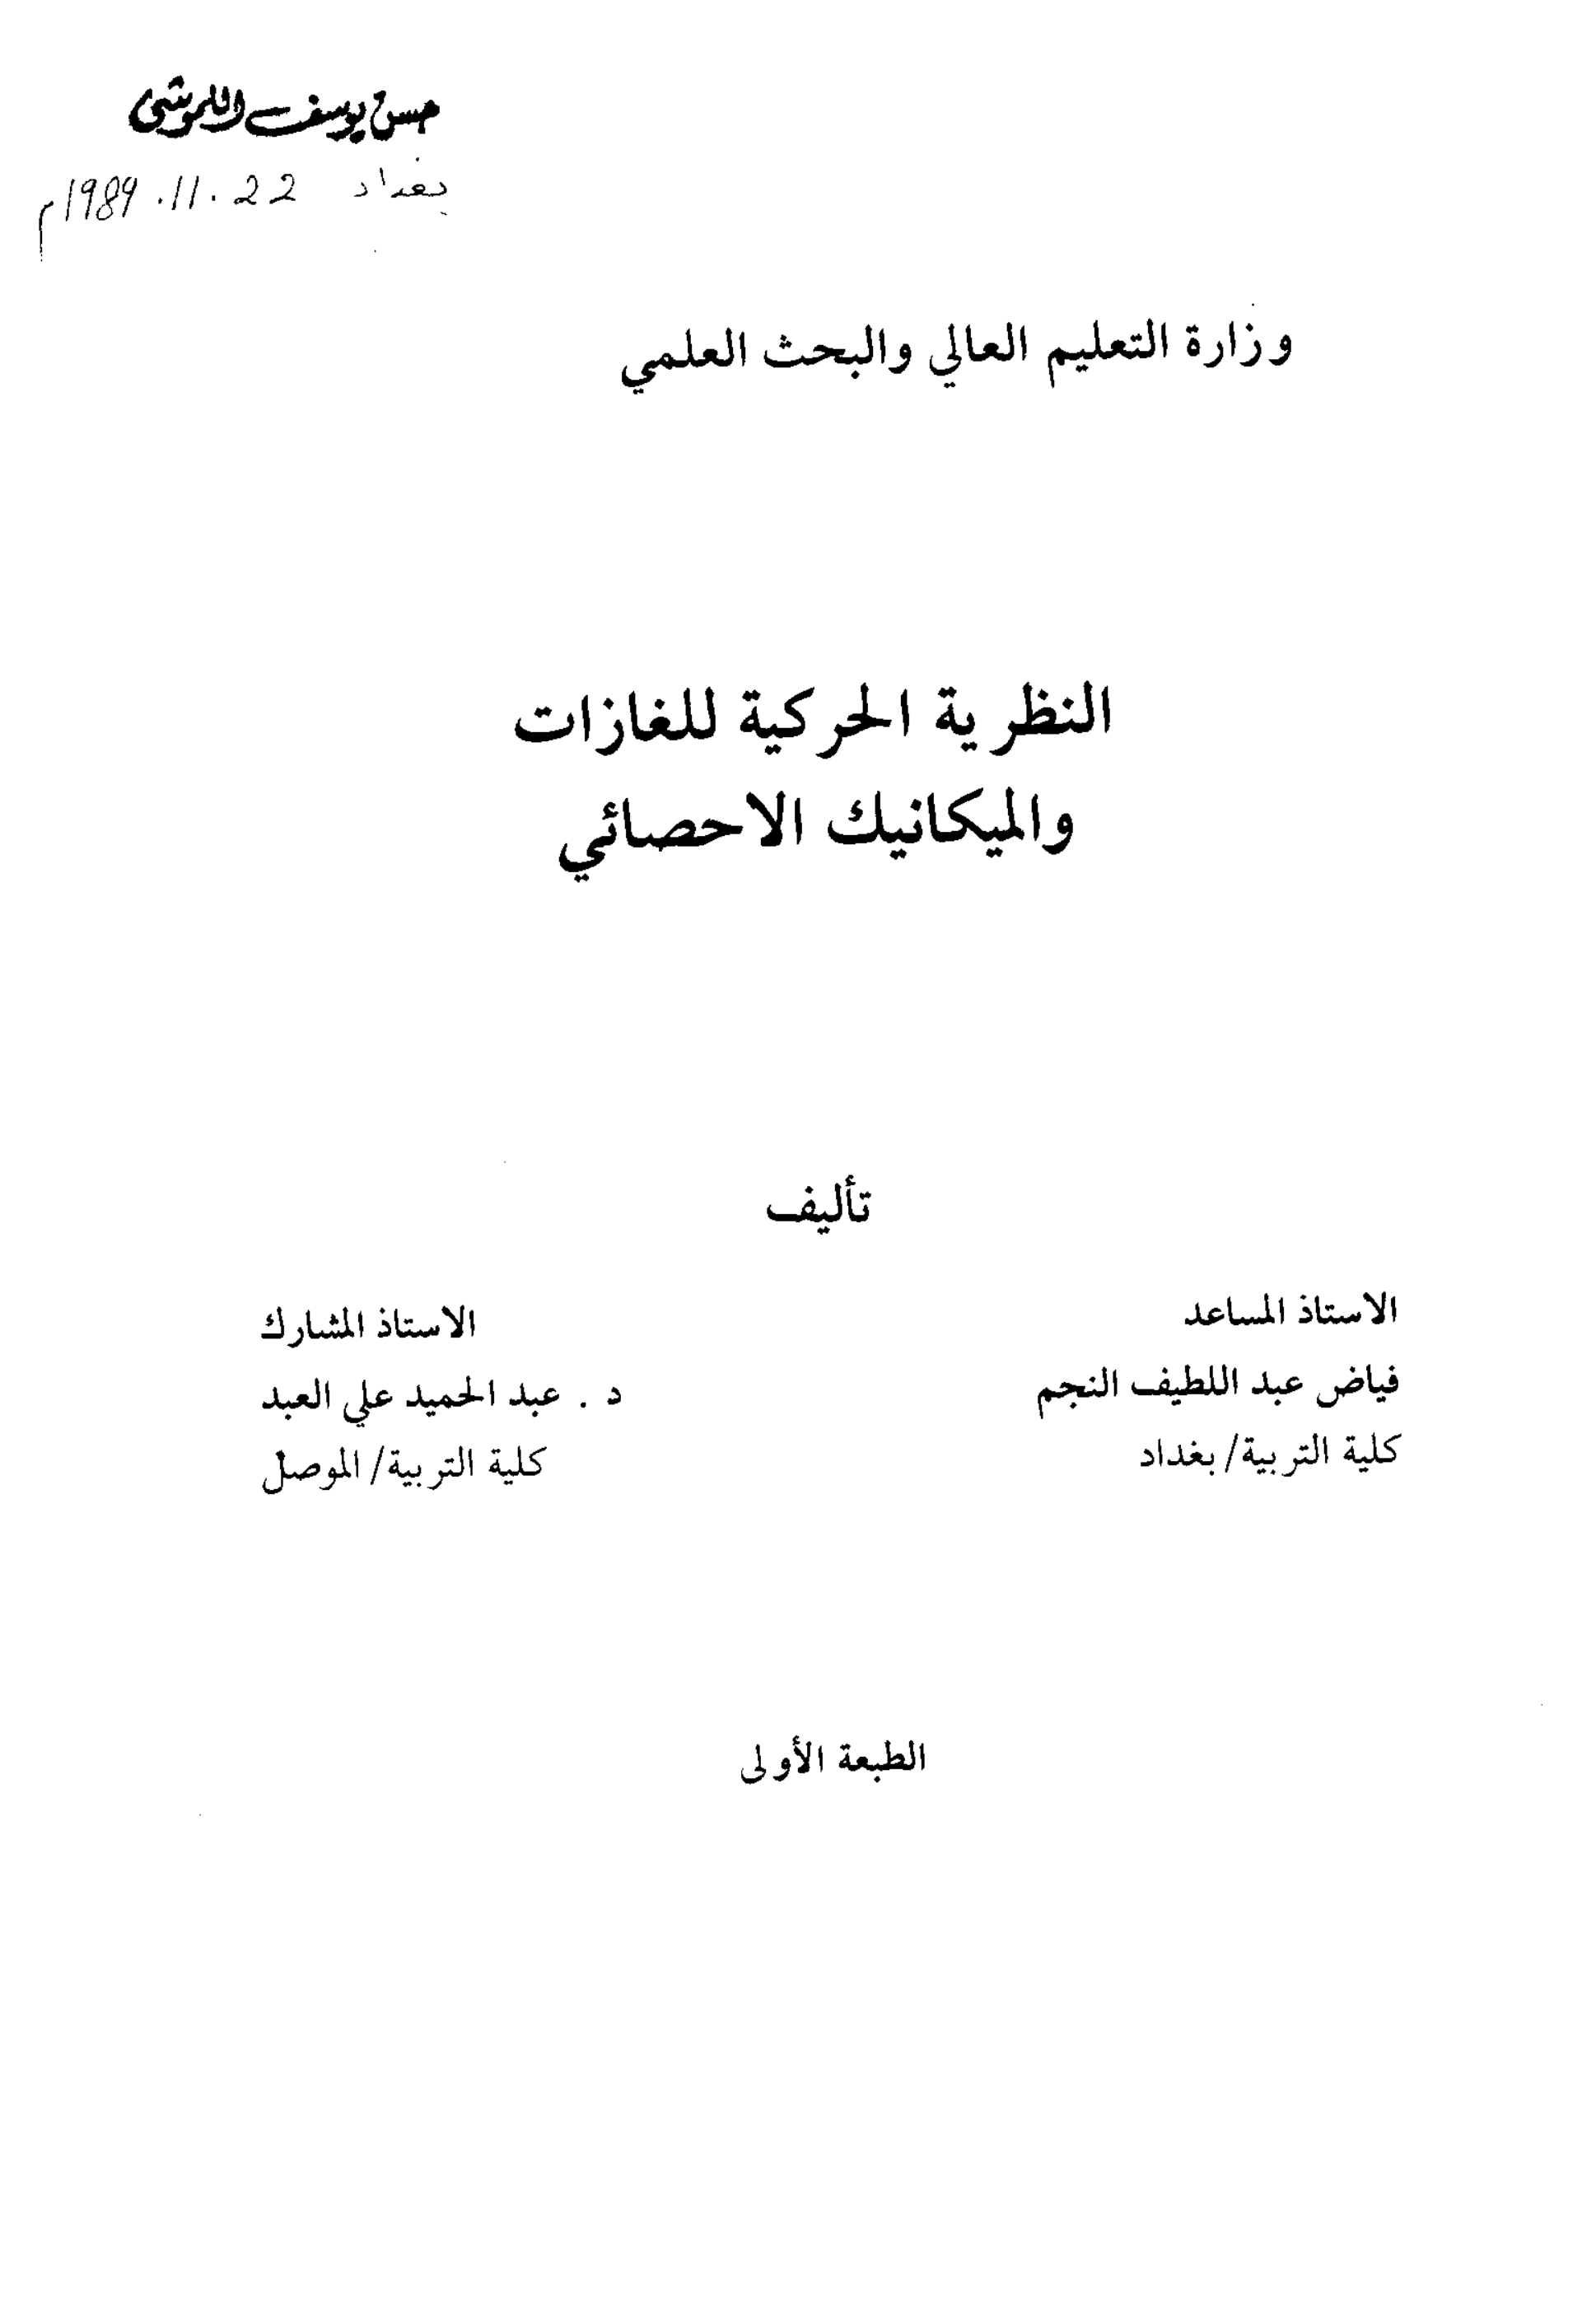 حسن يوسف
بغداد 22 . 11 . 1989م
وزارة التعليم العالي والبحث العلمي
النظرية الحركية للغازات
والميكانيك الاحصائي
تأليف
الاستاذ المساعد
فياض عبد اللطيف النجم
كلية التربية/ بغداد
الاستاذ المشارك
د . عبد الحميد علي العبد
كلية التربية/ الموصل
الطبعة الأولى